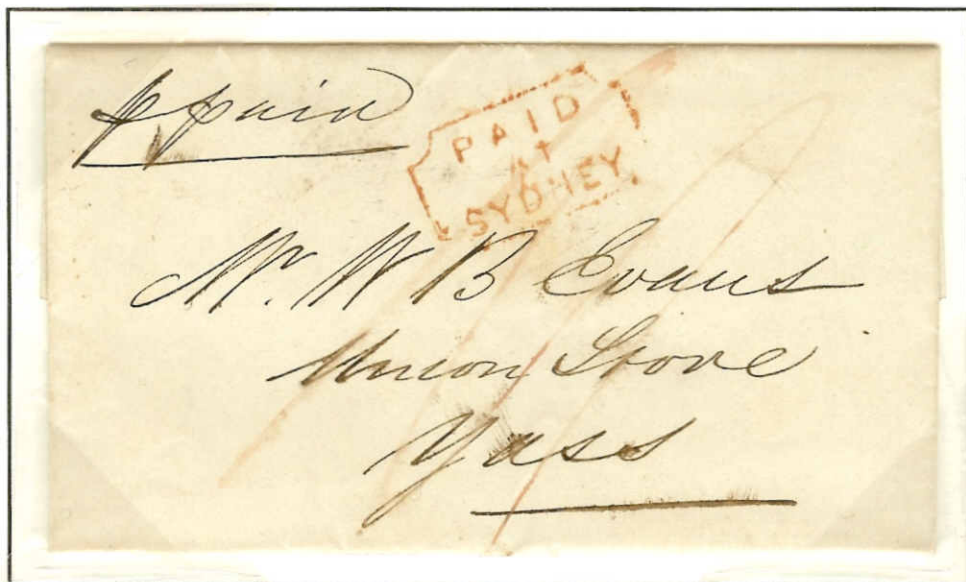 ppaid
PAID
At
SYDNEY.
Mr. W B Evans
Union Store
Yass